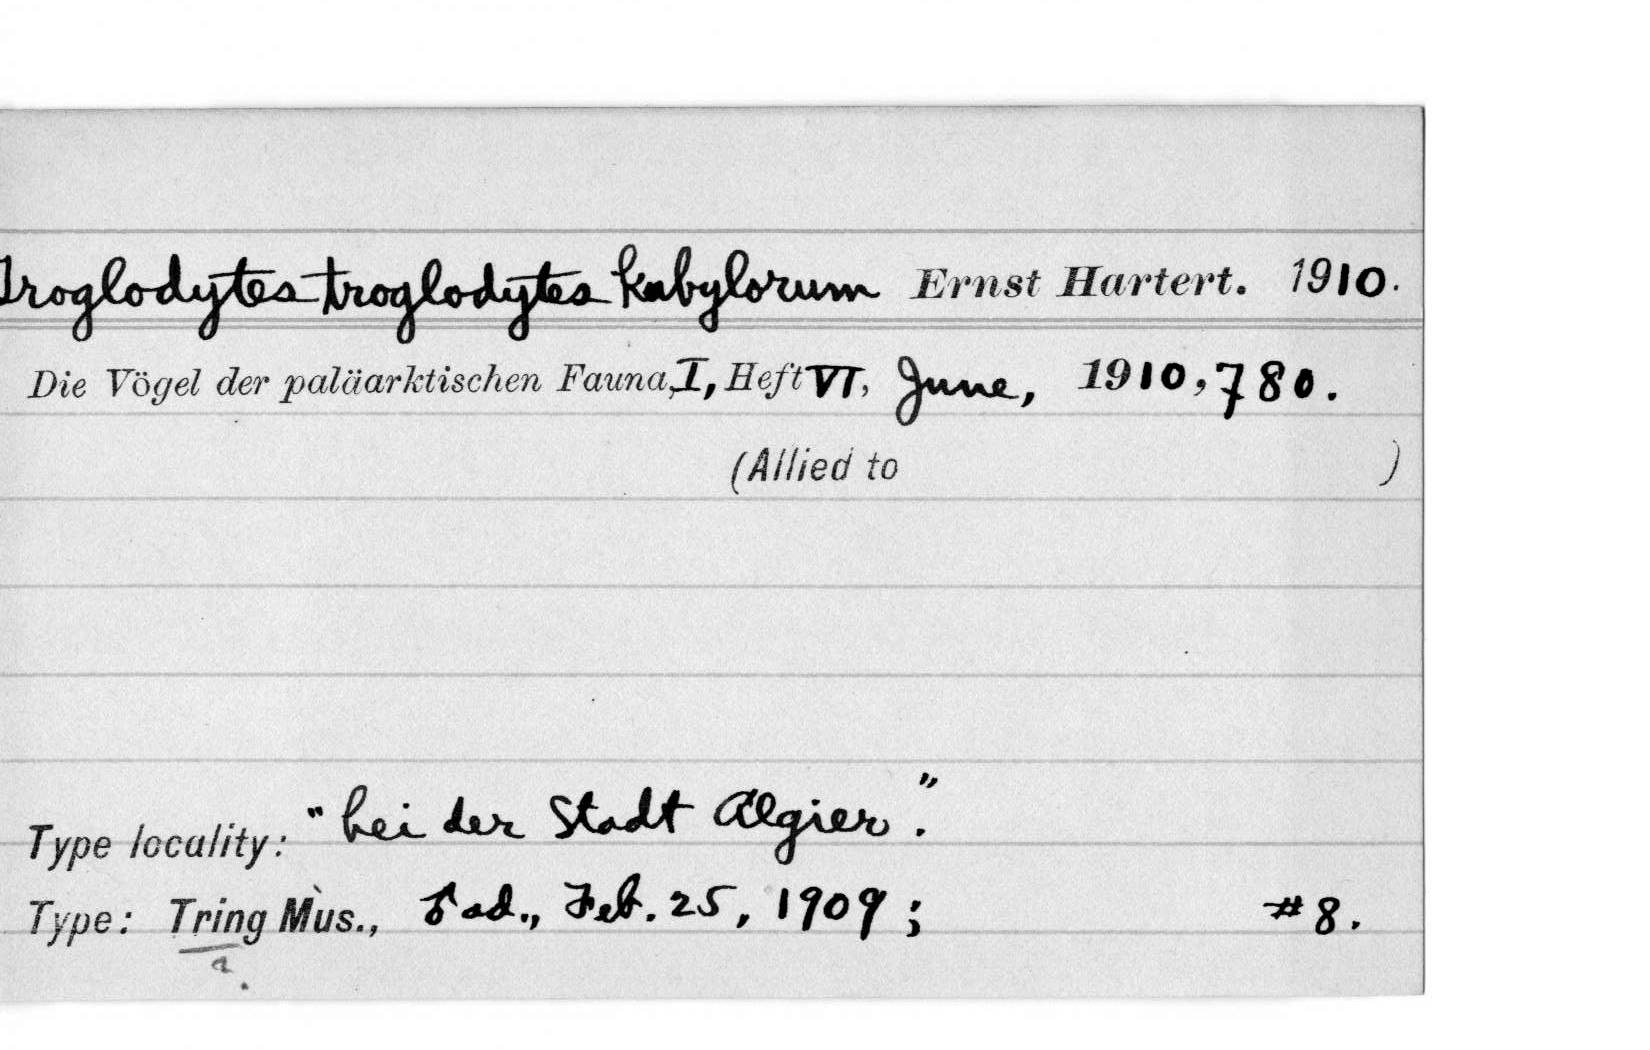 Troglodytes troglodytes kabylorum Ernst Hartert. 1910.
Die Vögel der paläarktischen Fauna, I, Heft VI, June, 1910, 780.
(Allied to )
Type locality: "bei der Stadt Algier".
Type: Tring Mus., ♂ ad., Feb. 25, 1909; #8.
a